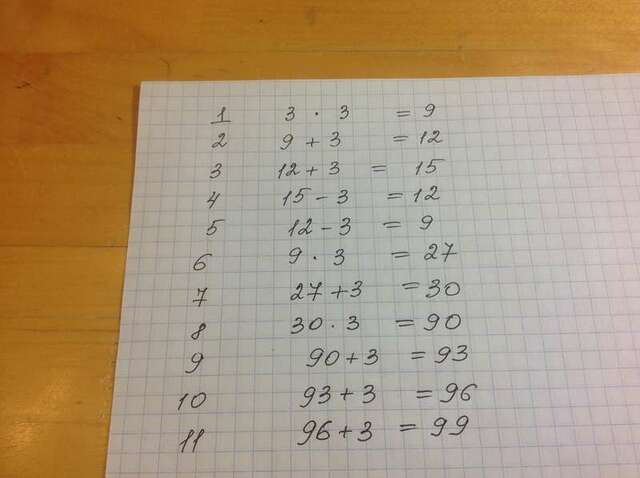 1 3 · 3 = 9
2 9 + 3 = 12
3 12 + 3 = 15
4 15 - 3 = 12
5 12 - 3 = 9
6 9 · 3 = 27
7 27 + 3 = 30
8 30 · 3 = 90
9 90 + 3 = 93
10 93 + 3 = 96
11 96 + 3 = 99